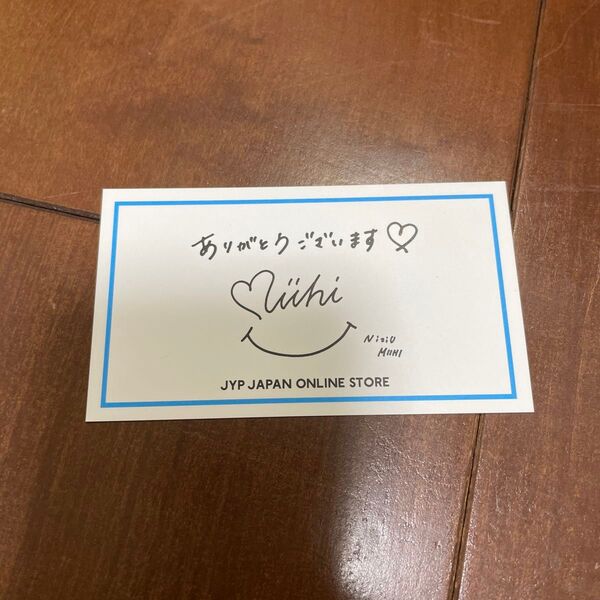 ありがとうございます♡
Miihi
NiziU
MIIHI
JYP JAPAN ONLINE STORE